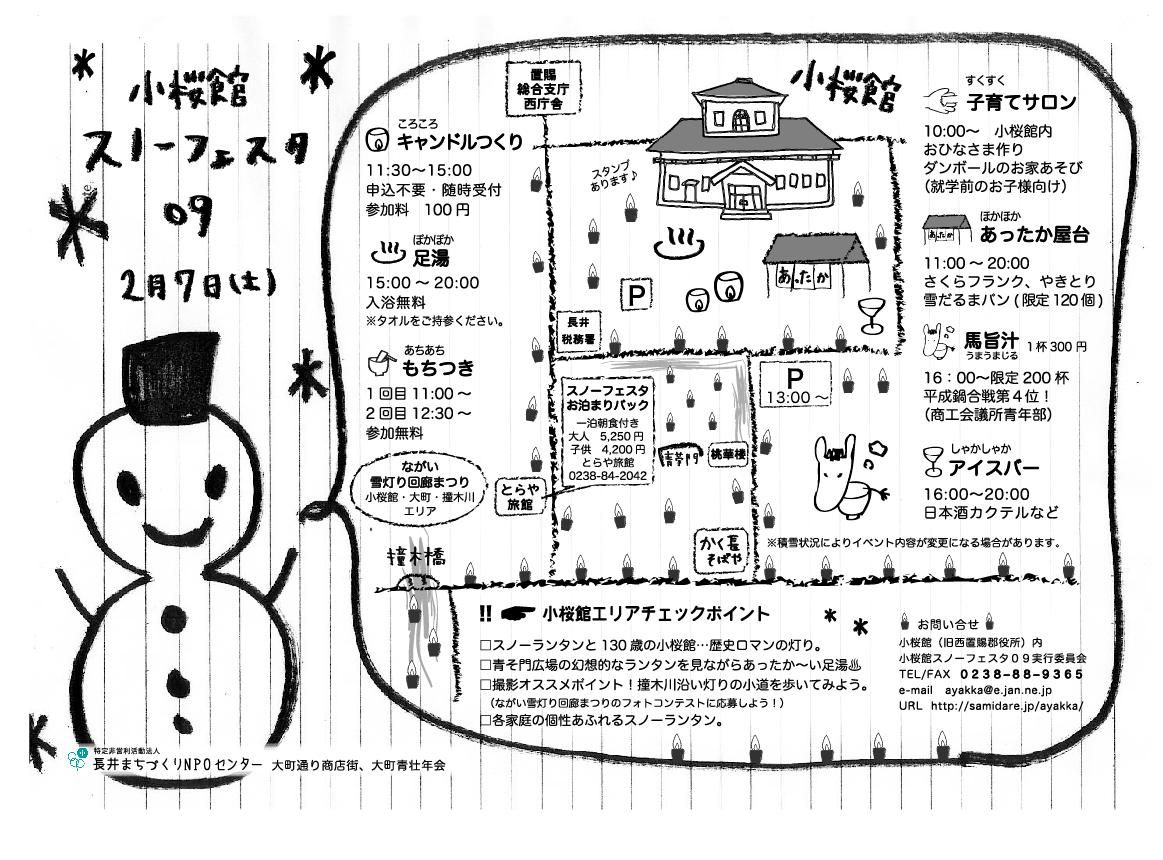 小桜館
スノーフェスタ
09
2月7日(土)
ころころ
キャンドルつくり
11:30〜15:00
申込不要・随時受付
参加料 100円
ぽかぽか
足湯
15:00〜20:00
入浴無料
※タオルをご持参ください。
あちあち
もちつき
1回目11:00〜
2回目12:30〜
参加無料
ながい
雪灯り回廊まつり
小桜館・大町・撞木川
エリア
撞木橋
置賜
総合支庁
西庁舎
小桜館
スタンプ
あります♪
あったか
P
長井
税務署
P
13:00〜
スノーフェスタ
お泊まりパック
一泊朝食付き
大人 5,250円
子供 4,200円
とらや旅館
0238-84-2042
とらや
旅館
桃華楼
かく長
そばや
すくすく
子育てサロン
10:00〜 小桜館内
おひなさま作り
ダンボールのお家あそび
(就学前のお子様向け)
ぽかぽか
あったか屋台
あったか
11:00〜20:00
さくらフランク、やきとり
雪だるまパン(限定120個)
馬旨汁 1杯300円
うまうまじる
16:00〜限定200杯
平成鍋合戦第4位!
(商工会議所青年部)
しゃかしゃか
アイスバー
16:00〜20:00
日本酒カクテルなど
※積雪状況によりイベント内容が変更になる場合があります。
!! 小桜館エリアチェックポイント
□スノーランタンと130歳の小桜館…歴史ロマンの灯り。
□青そ門広場の幻想的なランタンを見ながらあったか〜い足湯♨
□撮影オススメポイント!撞木川沿い灯りの小道を歩いてみよう。
(ながい雪灯り回廊まつりのフォトコンテストに応募しよう!)
□各家庭の個性あふれるスノーランタン。
お問い合せ
小桜館(旧西置賜郡役所)内
小桜館スノーフェスタ09実行委員会
TEL/FAX 0238-88-9365
e-mail ayakka@e.jan.ne.jp
URL http://samidare.jp/ayakka/
特定非営利活動法人
長井まちづくりNPOセンター 大町通り商店街、大町青壮年会